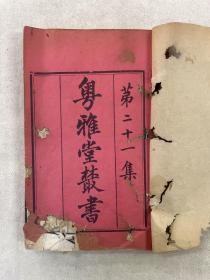 第二十一集
粵雅堂叢書